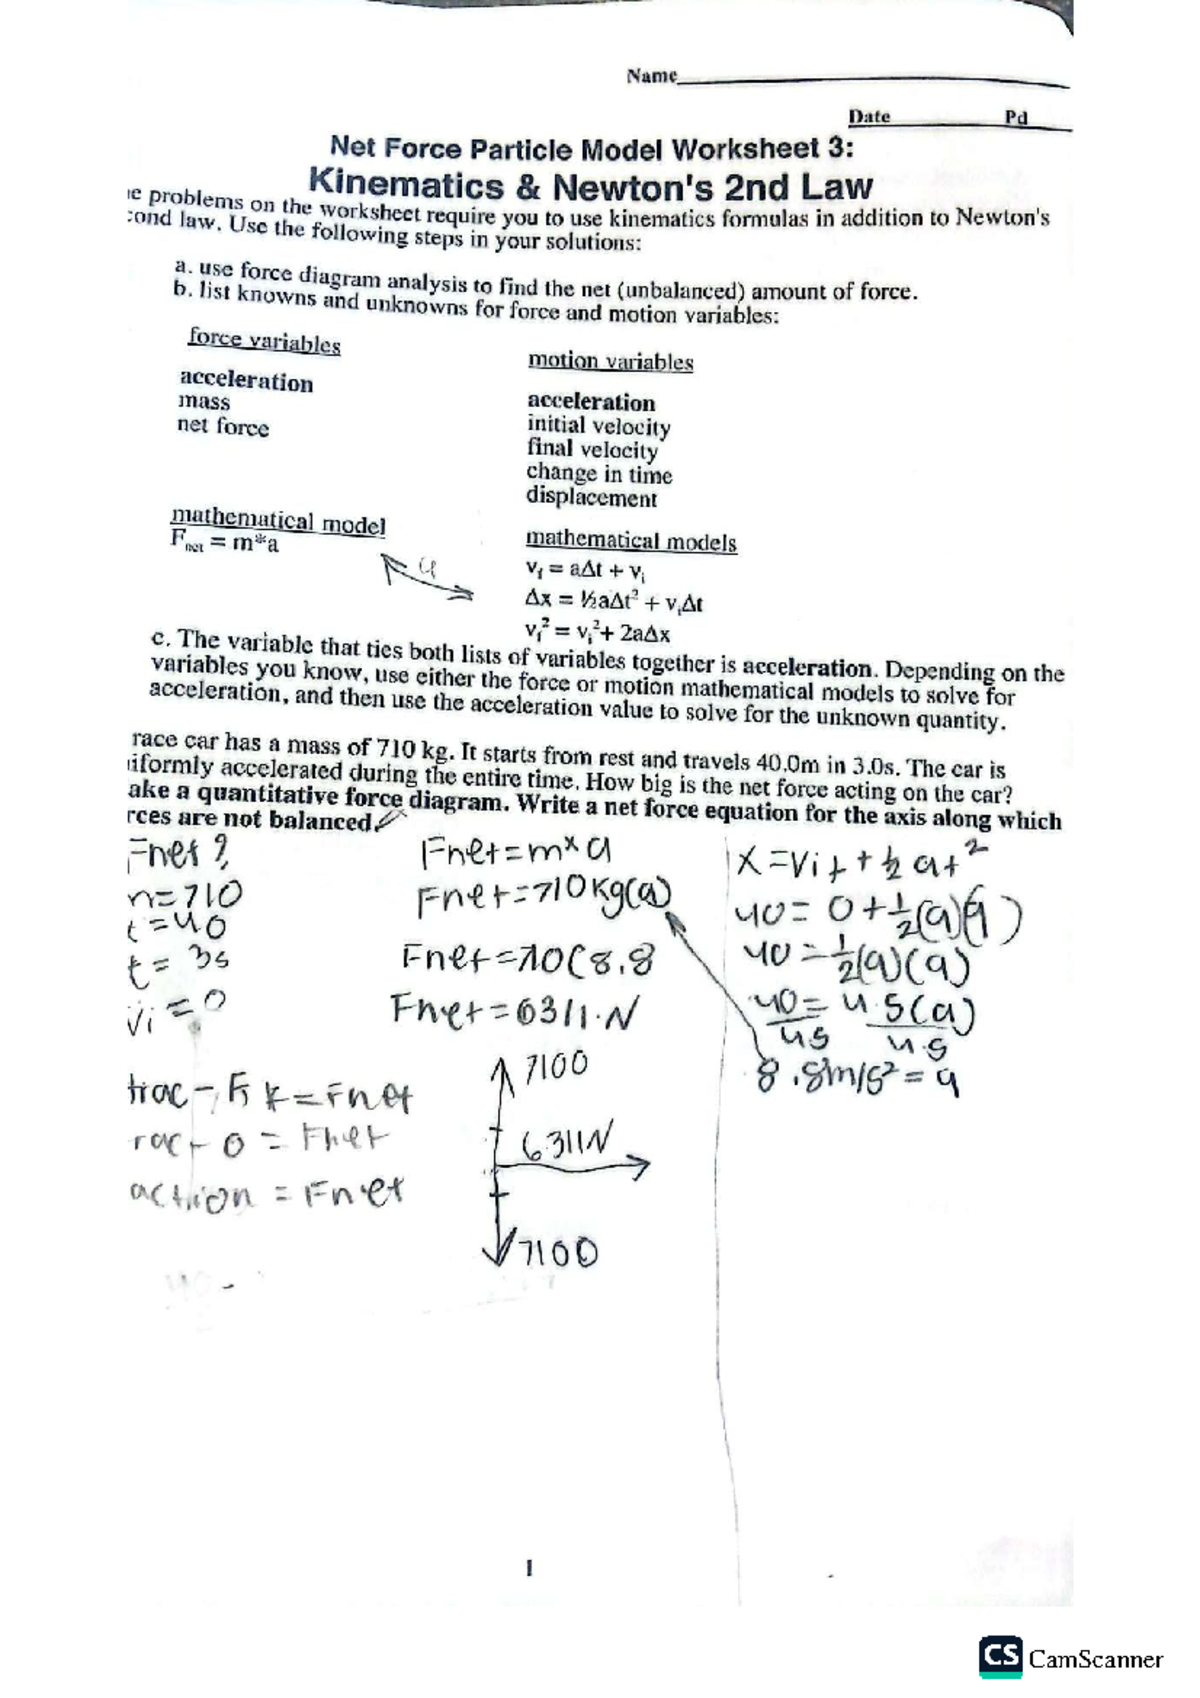 Name
Date Pd
Net Force Particle Model Worksheet 3:
Kinematics & Newton's 2nd Law
e problems on the worksheet require you to use kinematics formulas in addition to Newton's
cond law. Use the following steps in your solutions:
a. use force diagram analysis to find the net (unbalanced) amount of force.
b. list knowns and unknowns for force and motion variables:
force variables
acceleration
mass
net force
motion variables
acceleration
initial velocity
final velocity
change in time
displacement
mathematical model
Fnet = m*a
mathematical models
vf = aΔt + vi
Δx = ½aΔt² + viΔt
vf² = vi² + 2aΔx
c. The variable that ties both lists of variables together is acceleration. Depending on the
variables you know, use either the force or motion mathematical models to solve for
acceleration, and then use the acceleration value to solve for the unknown quantity.
race car has a mass of 710 kg. It starts from rest and travels 40.0m in 3.0s. The car is
iformly accelerated during the entire time. How big is the net force acting on the car?
ake a quantitative force diagram. Write a net force equation for the axis along which
rces are not balanced.
Fnet ?
m=710
=40
t = 3s
vi = 0
Fnet = m x a
Fnet = 710kg(a)
Fnet = 710(8.8
Fnet = 6311.N
x = vit + ½ at²
40 = 0 + ½(a)(9)
40 = ½(a)(9)
40 = 4.5(a)
4.5 4.5
8.8m/s² = a
trac - Fk = Fnet
rac - 0 = Fnet
action = Fnet
7100
6311N
7100
1
CS CamScanner